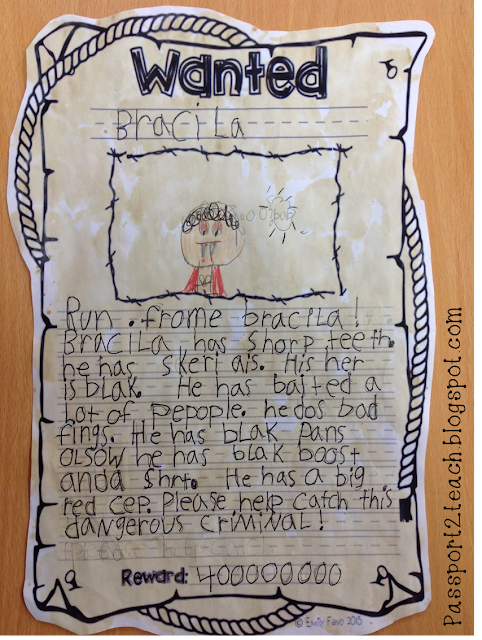 Wanted
Bracila
bad
Run . frome bracila!
Bracila has shorp teeth.
he has skeri ais. His her
is blak. He has baited a
Lot of pepople. he dos bad
fings. He has blak pans
olsow he has blak boost
anda shrt. He has a big
red cep. Please help catch this
dangerous criminal!
Reward: 400000000
© Emily Favo 2015
Passport2teach.blogspot.com